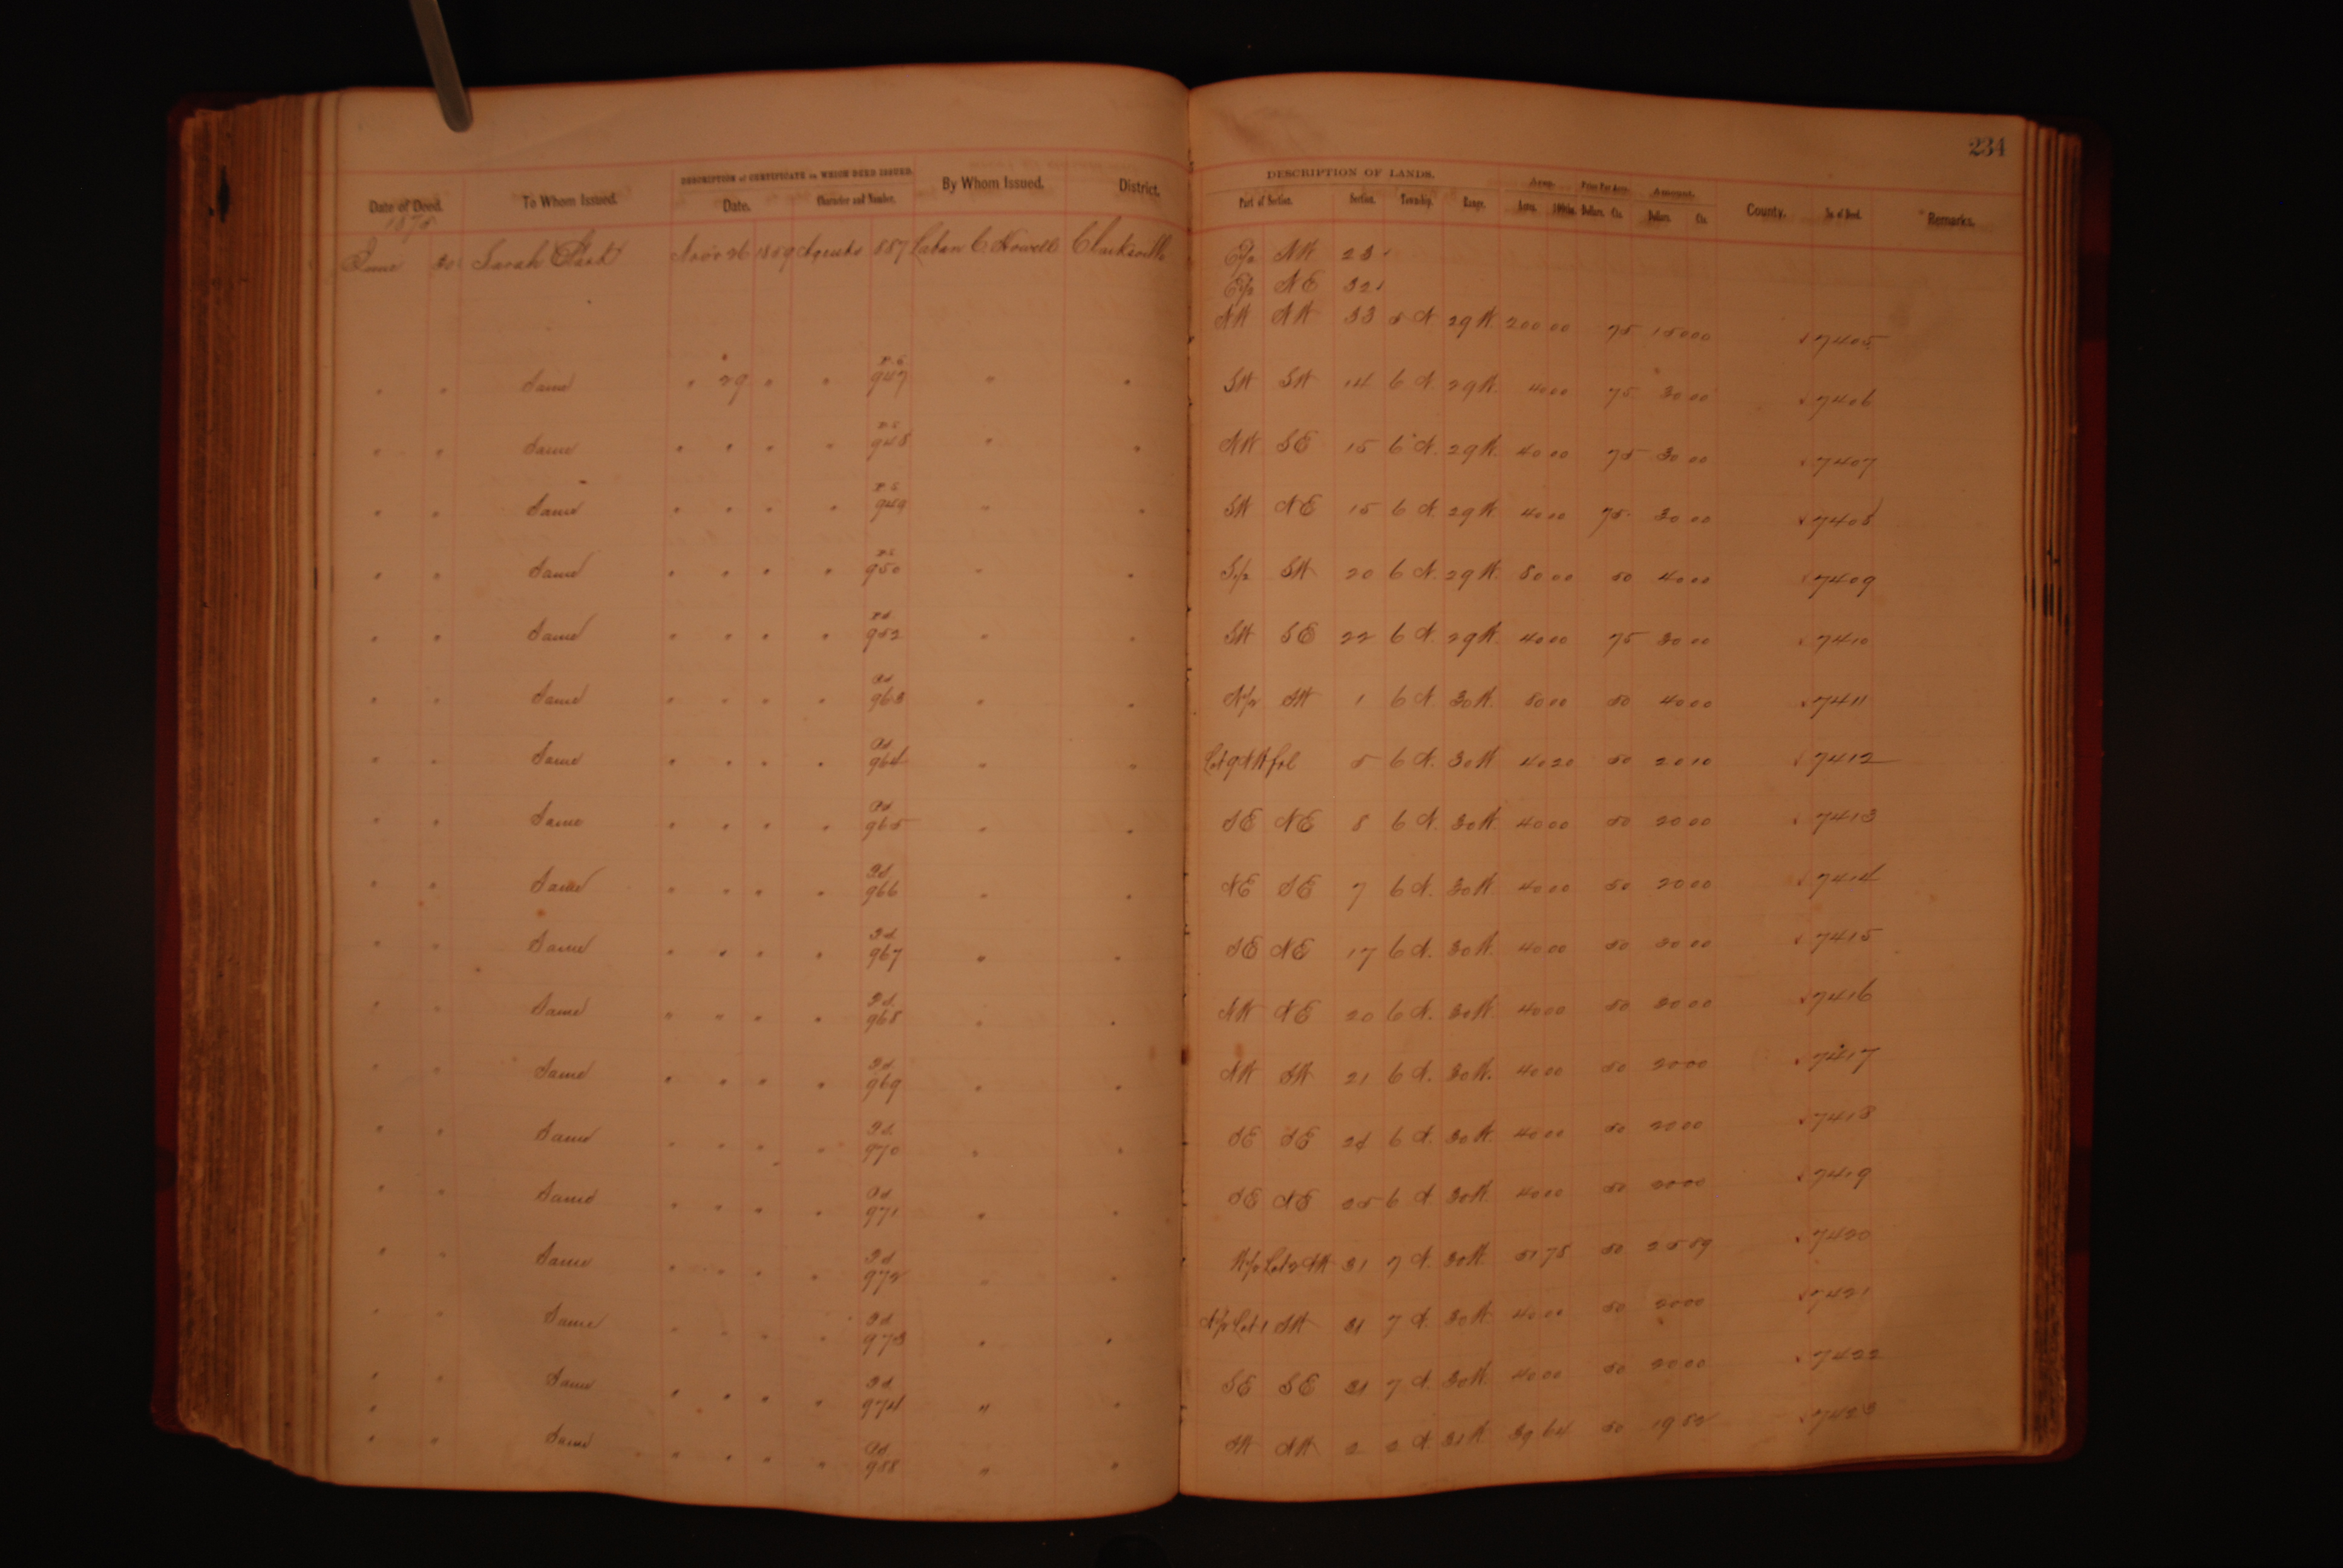 234
DESCRIPTION of CERTIFICATE on WHICH DEED ISSUED. DESCRIPTION OF LANDS.
Date of Deed. To Whom Issued. Date. Character and Number. By Whom Issued. District. Part of Section. Section. Township. Range. Area. Acres. 100ths. Price Per Acre. Dollars. Cts. Amount. Dollars. Cts. County. No. of Deed. Remarks.
1875
June 30 Sarah Clark Nov 26 1859 887 Laban C Howell Clarksville E/2 NW 23
E/2 NE 32
NW NW 33 5 N 29 W. 200 00 75 150 00 7405
" " Same " 29 " " 947 " " SW SW 14 6 N 29 W. 40 00 75 30 00 7406
" " Same " " " " 948 " " NW SE 15 6 N. 29 W. 40 00 75 30 00 7407
" " Same " " " " 949 " " SW NE 15 6 N. 29 W. 40 00 75 30 00 7408
" " Same " " " " 950 " " S/2 SW 20 6 N. 29 W. 80 00 50 40 00 7409
" " Same " " " " 952 " " SW SE 22 6 N. 29 W. 40 00 75 30 00 7410
" " Same " " " " 963 " " N/2 SW 1 6 N. 30 W. 80 00 50 40 00 7411
" " Same " " " " 964 " " Lot 9 NW frl 5 6 N. 30 W 40 20 50 20 10 7412
" " Same " " " " 965 " " SE NE 8 6 N. 30 W. 40 00 50 20 00 7413
" " Same " " " " 966 " " NE SE 7 6 N. 30 W 40 00 50 20 00 7414
" " Same " " " " 967 " " SE NE 17 6 N. 30 W. 40 00 50 20 00 7415
" " Same " " " " 968 " " NW NE 20 6 N. 30 W. 40 00 50 20 00 7416
" " Same " " " " 969 " " NW SW 21 6 N. 30 W. 40 00 50 20 00 7417
" " Same " " " " 970 " " SE SE 24 6 N. 30 W. 40 00 50 20 00 7418
" " Same " " " " 971 " " SE NE 25 6 N 30 W. 40 00 50 20 00 7419
" " Same " " " " 972 " " W/2 Lot 2 NW 31 7 N. 30 W. 51 78 50 25 89 7420
" " Same " " " " 973 " " N/2 Lot 1 SW 31 7 N. 30 W 40 00 50 20 00 7421
" " Same " " " " 974 " " SE SE 31 7 N. 30 W. 40 00 50 20 00 7422
" " Same " " " " 988 " " SW NW 2 2 N. 31 W 39 64 50 19 82 7423